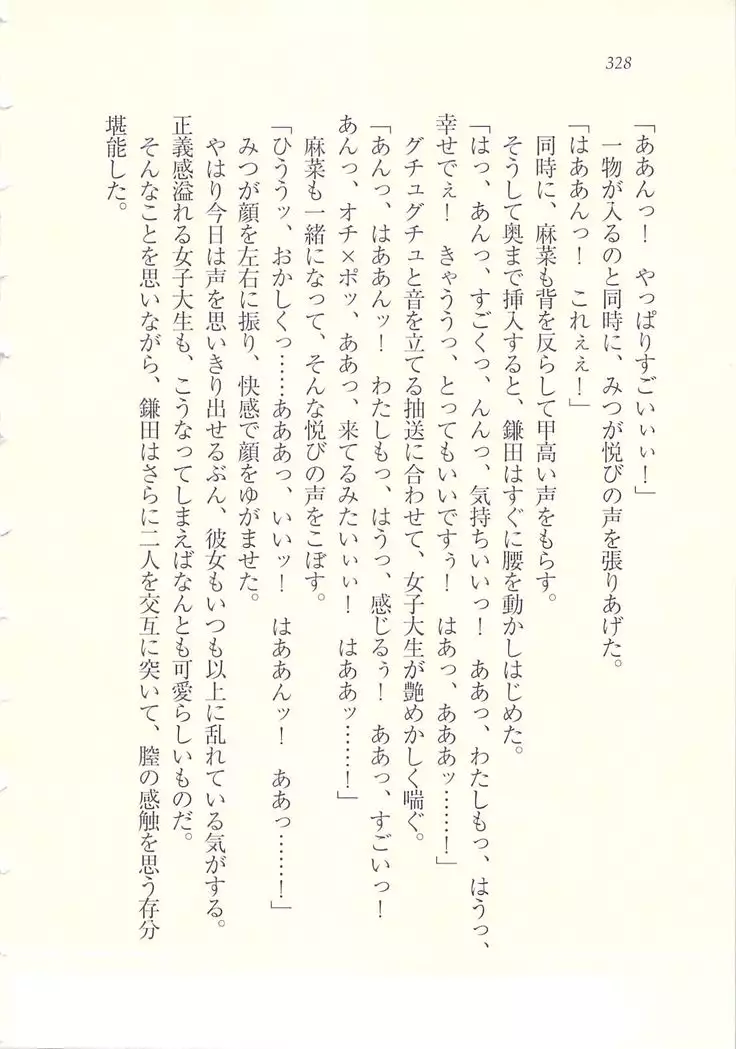 328
「ああんっ！　やっぱりすごいぃぃ！」
一物が入るのと同時に、みつが悦びの声を張りあげた。
「はああんっ！　これぇぇ！」
同時に、麻菜も背を反らして甲高い声をもらす。
そうして奥まで挿入すると、鎌田はすぐに腰を動かしはじめた。
「はっ、あんっ、すごくっ、んんっ、気持ちいいっ！　ああっ、わたしもっ、はうっ、
幸せでぇ！　きゃううっ、とってもいいですぅ！　はあっ、あああッ……！」
グチュグチュと音を立てる抽送に合わせて、女子大生が艶めかしく喘ぐ。
「あんっ、はああんッ！　わたしもっ、はうっ、感じるぅ！　ああっ、すごいっ！
あんっ、オチ×ポッ、ああっ、来てるみたいぃぃ！　はああッ……！」
麻菜も一緒になって、そんな悦びの声をこぼす。
「ひううッ、おかしくっ……あああっ、いいッ！　はああんッ！　ああっ……！」
みつが顔を左右に振り、快感で顔をゆがませた。
やはり今日は声を思いきり出せるぶん、彼女もいつも以上に乱れている気がする。
正義感溢れる女子大生も、こうなってしまえばなんとも可愛らしいものだ。
そんなことを思いながら、鎌田はさらに二人を交互に突いて、膣の感触を思う存分
堪能した。